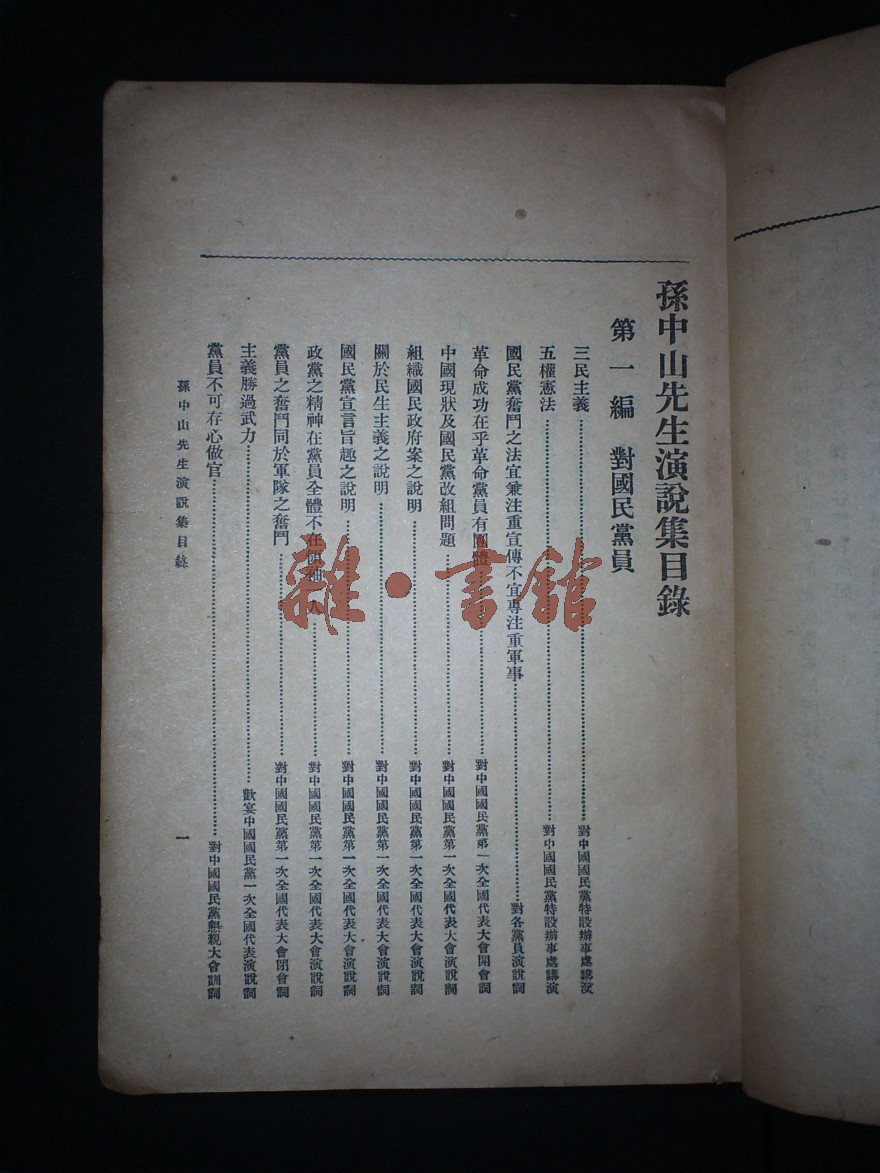 孫中山先生演說集目錄
第一編　對國民黨員
三民主義……對中國國民黨特設辦事處講演
五權憲法……對中國國民黨特設辦事處講演
國民黨奮鬥之法宜兼注重宣傳不宜專注重軍事……對各黨員演說詞
革命成功在乎革命黨員有團體……對中國國民黨第一次全國代表大會開會詞
中國現狀及國民黨改組問題……對中國國民黨第一次全國代表大會演說詞
組織國民政府案之說明……對中國國民黨第一次全國代表大會演說詞
關於民生主義之說明……對中國國民黨第一次全國代表大會演說詞
國民黨宣言旨趣之說明……對中國國民黨第一次全國代表大會演說詞
政黨之精神在黨員全體不在領袖一人……對中國國民黨第一次全國代表大會演說詞
黨員之奮鬥同於軍隊之奮鬥……對中國國民黨第一次全國代表大會閉會詞
主義勝過武力……歡宴中國國民黨一次全國代表演說詞
黨員不可存心做官……對中國國民黨懇親大會訓詞
孫中山先生演說集目錄
一
雜·書館